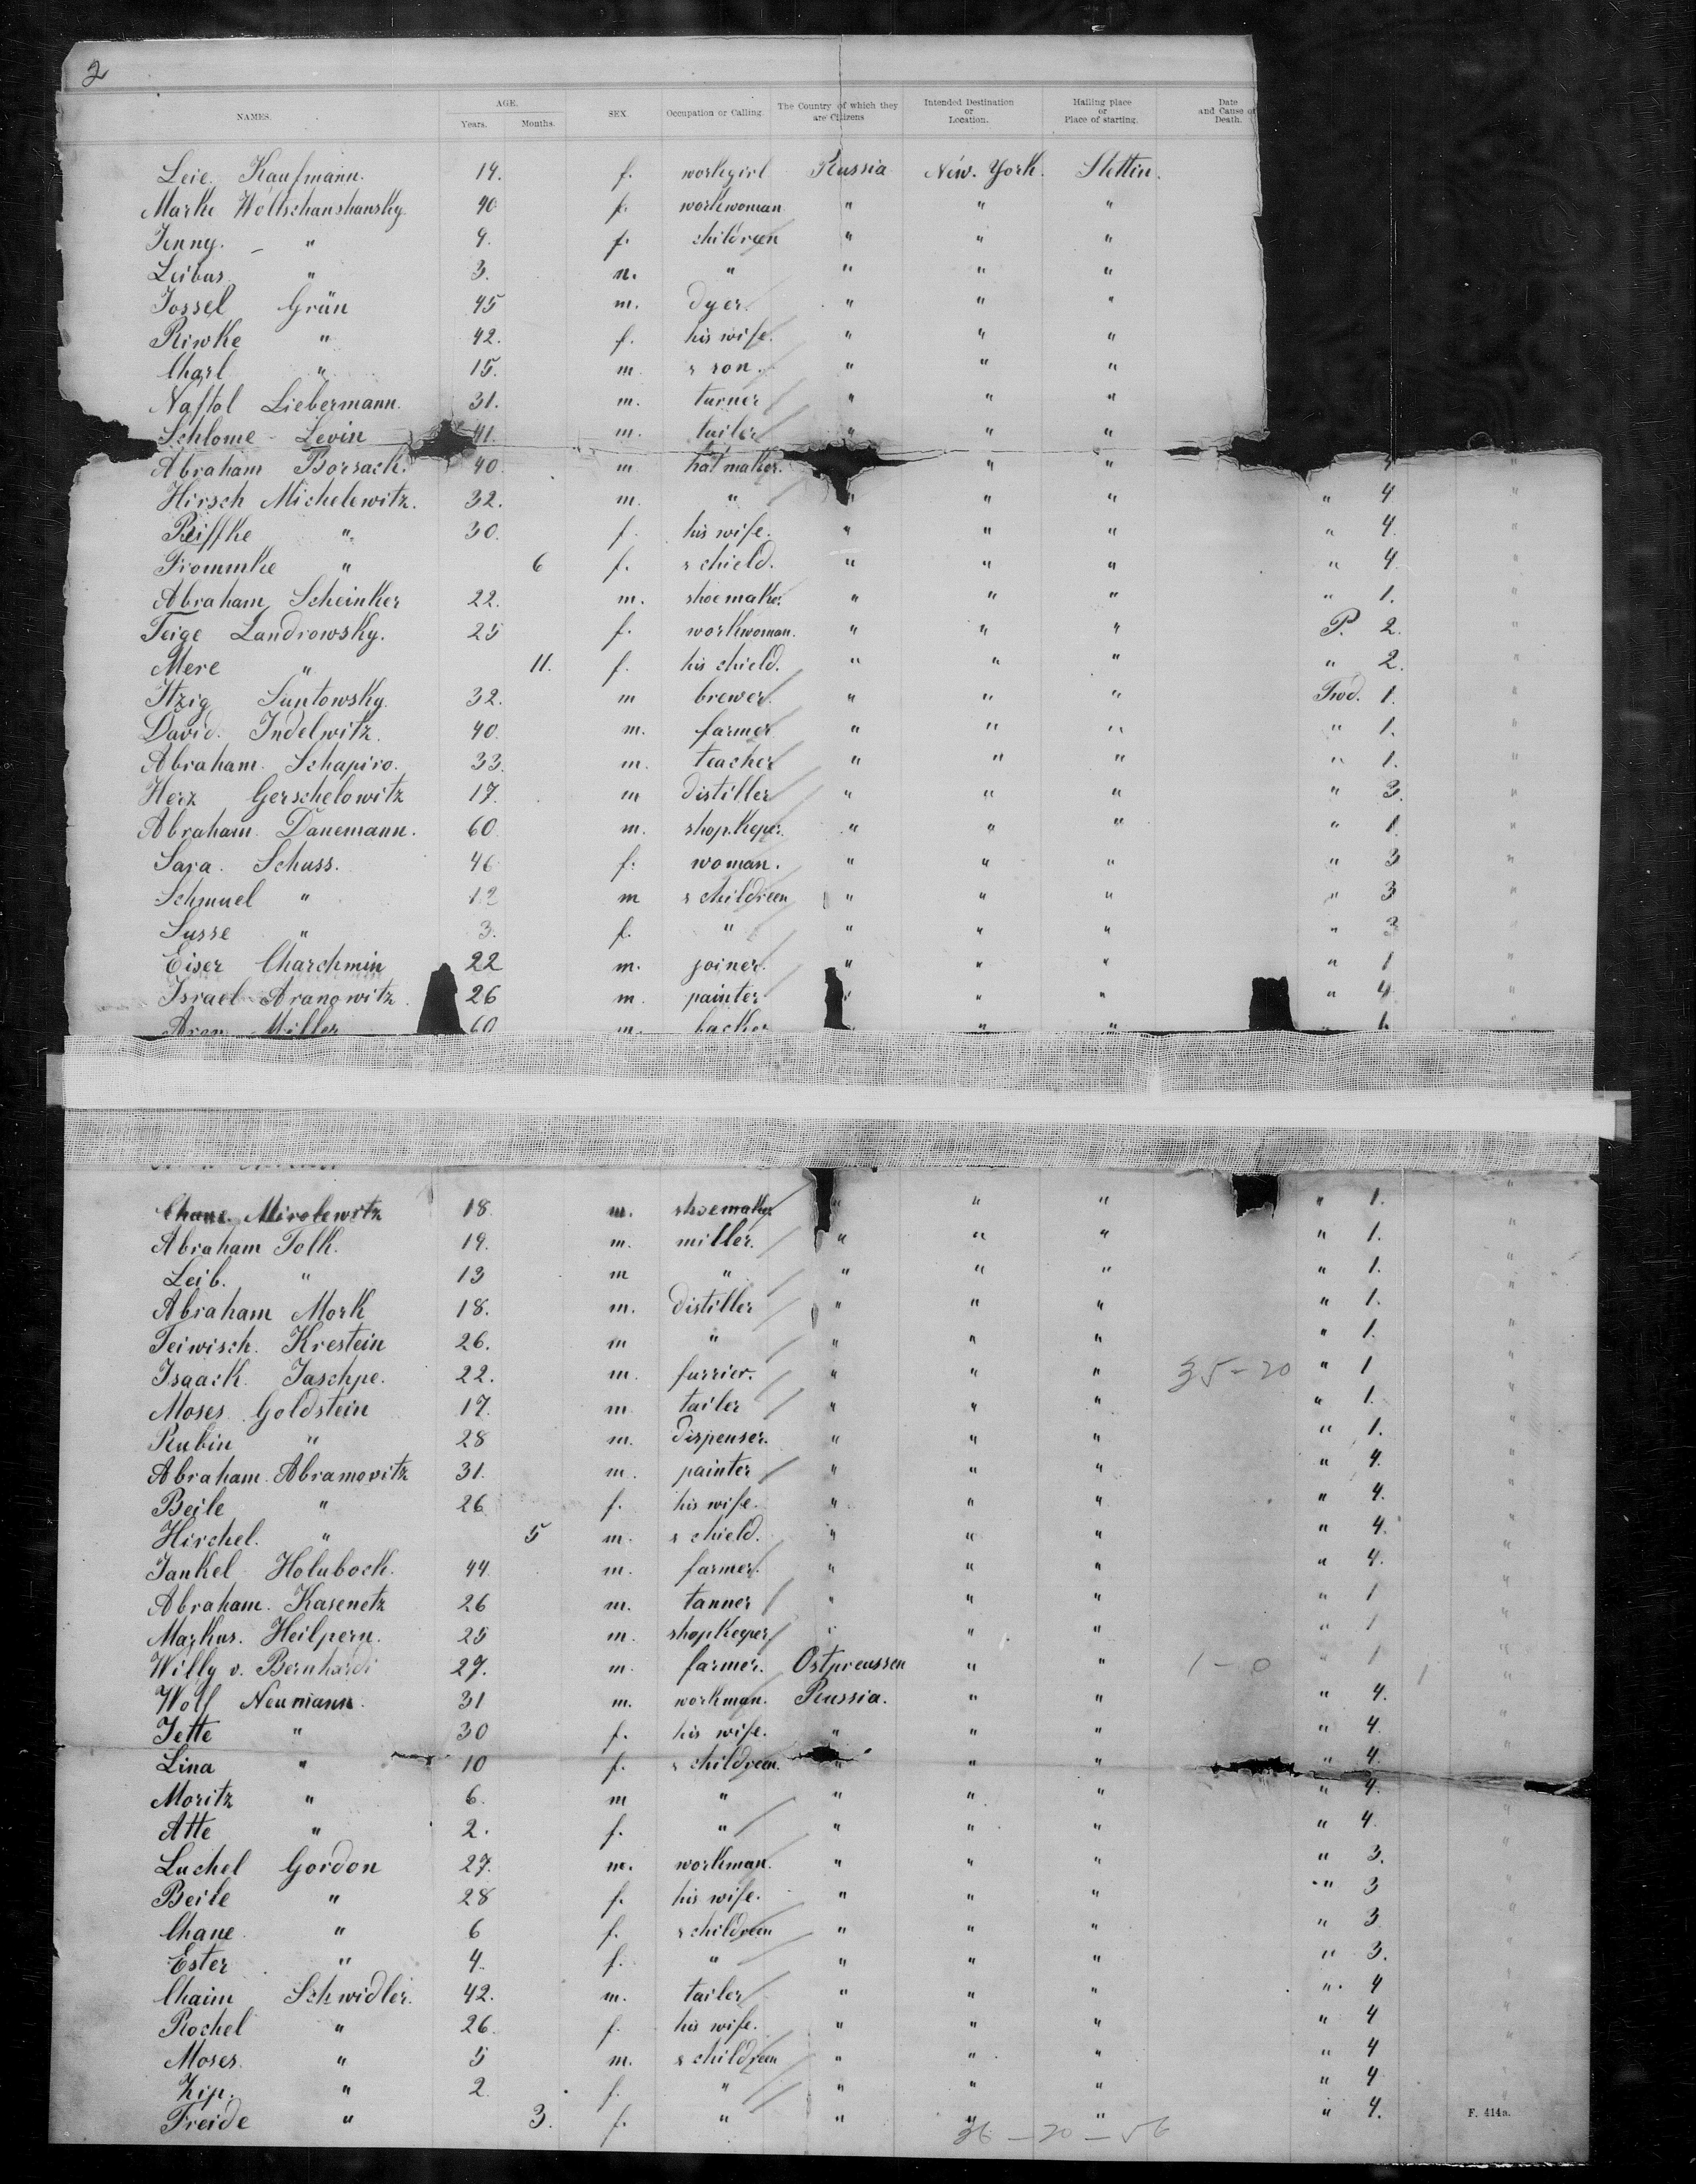 2
NAMES. AGE. Years. Months. SEX. Occupation or Calling. The Country of which they are Citizens Intended Destination or Location. Hailing place or Place of starting. Date and Cause of Death.
Leie Kaufmann. 19. f. workgirl Russia New. York. Stettin.
Marke Woltschanshansky. 40 f. workwoman " " "
Jenny. " 9. f. childreen " " "
Leibas " 3. m. " " " "
Jossel Grün 45 m. dyer. " " "
Riwke " 42. f. his wife. " " "
Charl " 15. m " son. " " "
Naftol Liebermann. 31. m. turner " " "
Schlome Levin 41. m. tailer " " "
Abraham Borsack. 40 m hatmaker. " "
Hirsch Michelewitz. 32. m. " " " " " 4 "
Reiffke " 30. f. his wife. " " " " 4. "
Frommke " 6 f. " chield. " " " " 4 "
Abraham Scheinker 22. m. shoemaker. " " " " 1. "
Feige Landrowsky. 25 f. workwoman. " " " P. 2. "
Mere " 11. f. his chield. " " " " 2. "
Itzig Suntowsky. 32. m brewer. " " " Fwd. 1. "
David. Indelwitz. 40. m. farmer " " " " 1. "
Abraham. Schapiro. 33. m. teacher " " " " 1. "
Herz Gerschelowitz 17. m distiller " " " " 3. "
Abraham. Danemann. 60. m. shop.keper. " " " " 1 "
Sara. Schuss. 46 f. woman. " " " " 3 "
Schmuel " 12 m " childreen " " " " 3 "
Susse " 3. f. " " " " " 3 "
Eiser Charchmin 22 m. joiner. " " " " 1 "
Israel Aranowitz. 26 m. painter " " " " 4 "
Aron Miller 60 m. backer " " " 1. "
Chane. Mirolewitz 18. m. shoemaker " " " " 1. "
Abraham Folk. 19. m. miller. " " " " 1. "
Leib. " 13 m " " " " " 1. "
Abraham Mork 18. m. distiller " " " " 1. "
Feiwisch. Krestein 26. m " " " " " 1. "
Isaack. Jaschpe. 22. m. furrier. " " " 35-20 " 1 "
Moses. Goldstein 17. m tailer " " " " 1. "
Rubin " 28 m. dispenser. " " " " 1. "
Abraham. Abramovitz 31. m. painter " " " " 4. "
Beile " 26 f. his wife. " " " " 4. "
Hirchel. " 5 m. " chield. " " " " 4. "
Jankel Holubock. 44. m. farmer. " " " " 4. "
Abraham. Kasenetz 26 m. tanner " " " " 1 "
Markus. Heilpern. 25 m. shopkeeper " " " " 1 "
Willy v. Bernhardi 27. m. farmer. Ostpreussen " " 1 - 0 " 1 1 "
Wolf Neumann. 31 m. workman. Russia. " " " 4. "
Jette " 30 f. his wife. " " " " 4. "
Lina " 10 f. " childreen. " " " " 4.
Moritz " 6. m " " " " " 4. "
Atte " 2. f. " " " " " 4. "
Luchel Gordon 27. m. workman. " " " " 3. "
Beile " 28 f. his wife. " " " " 3 "
Chane " 6 f. " childreen " " " " 3 "
Ester " 4. f. " " " " " 3. "
Chaim Schwidler. 42. m. tailer " " " " 4 "
Rochel " 26. f. his wife. " " " " 4 "
Moses. " 5 m. " childreen " " " " 4 "
Zip. " 2. f. " " " " " 4 "
Freide " 3. f. " " " " " 4. F. 414a.
36 - 20 - 56